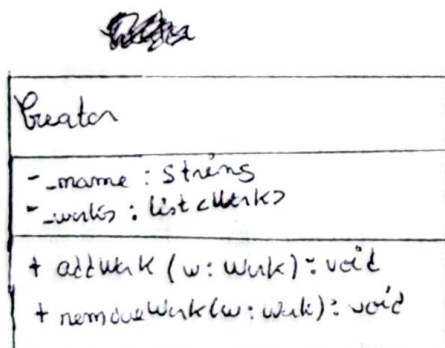 Creator
- _name : String
- _works : List<Work>
+ addWork (w : Work) : void
+ removeWork(w : Work) : void